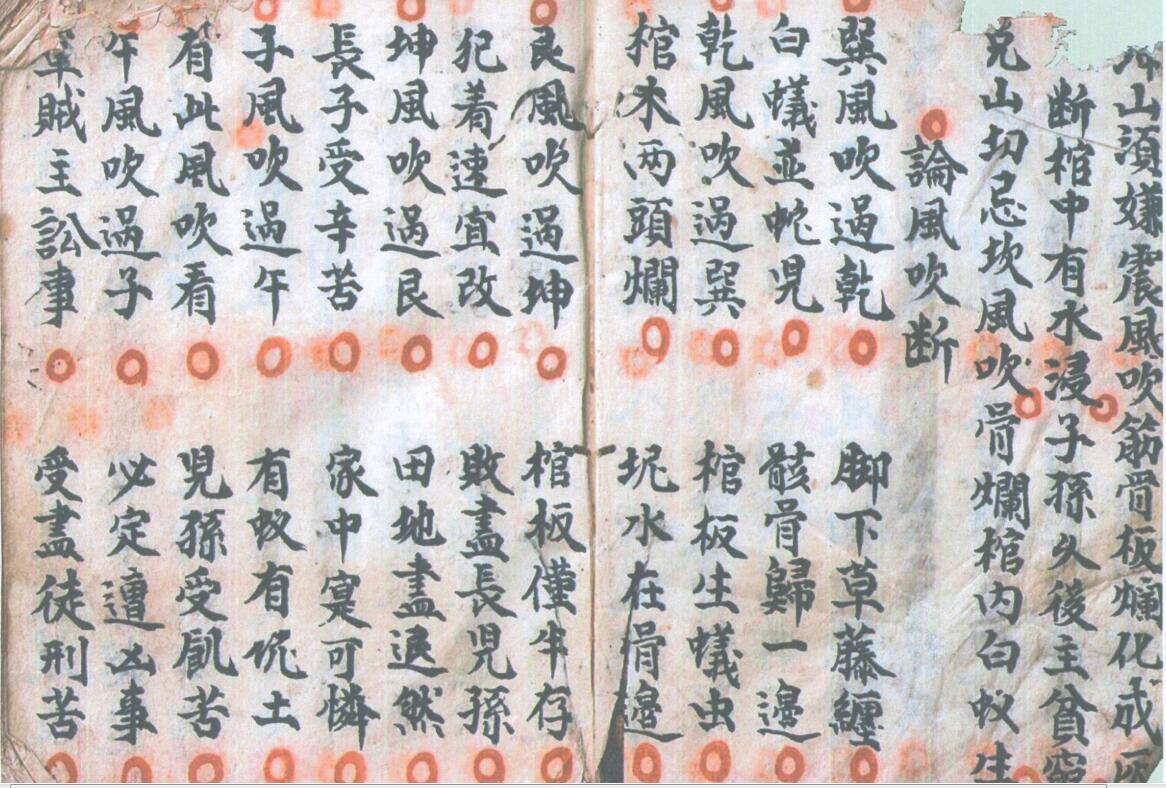 山須嫌震風吹筋骨板爛化成灰
断棺中有水浸子孫久後主貧窮
兑山切忌坎風吹骨爛棺内白蚁生
論風吹断
巽風吹過乾 脚下草藤纏
白蟻並蛇児 骸骨歸一邊
乾風吹過巽 棺板生蟻虫
棺木两頭爛 坭水在骨邊
艮風吹過坤 棺板僅半存
犯着速宜改 敗盡長児孫
坤風吹過艮 田地盡退然
長子受辛苦 家中寞可憐
子風吹過午 有蚁有坭土
有此風吹看 児孫受飢苦
午風吹過子 必定遭凶事
賊主訟事 受盡徒刑苦